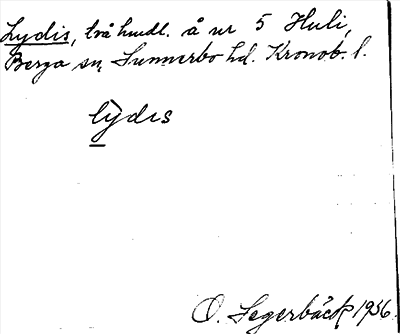 Lydis, två hmdl. å nr 5 Huli,
Berga sn, Sunnerbo hd. Kronob. l.
lỳdɩs
O. Segerbäck 1936.